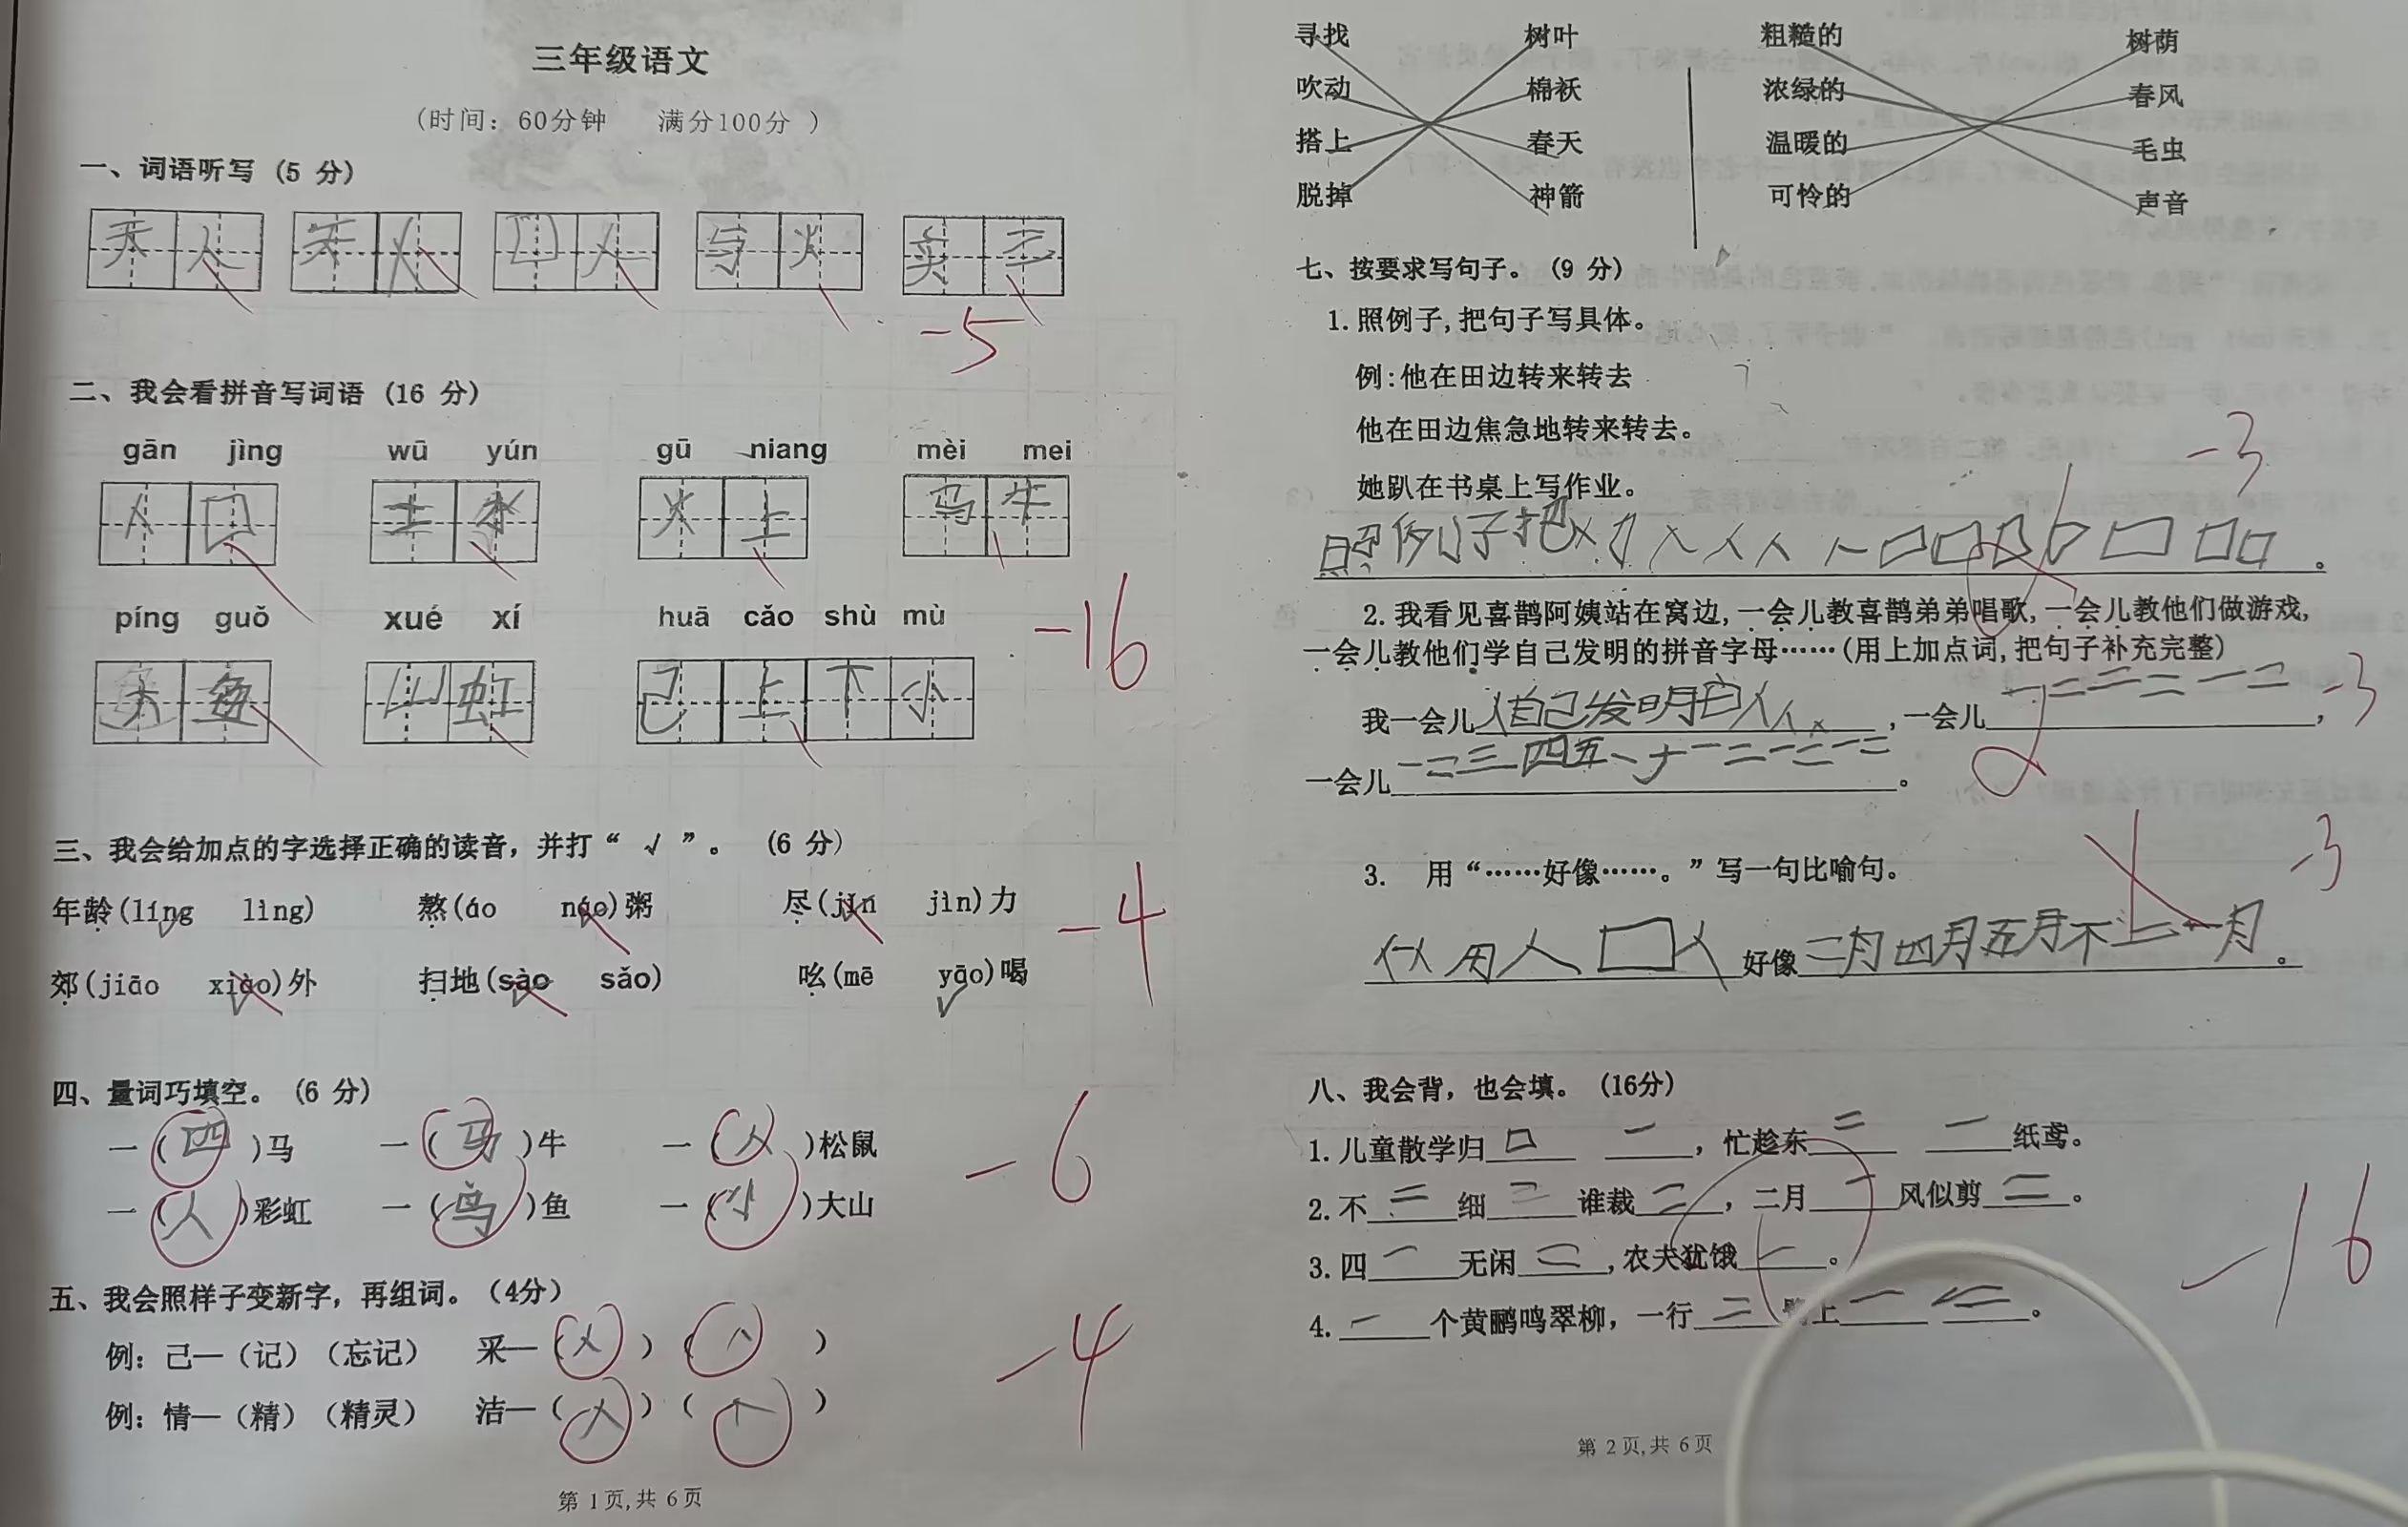 三年级语文
(时间：60分钟 满分100分 )
一、词语听写 (5 分)
天 人 天 人 口 人 与 火 卖 二
-5
二、我会看拼音写词语 (16 分)
gān jìng wū yún gū niang mèi mei
人 口 土 水 火 上 马 牛
píng guǒ xué xí huā cǎo shù mù
-16
山 虹 己 上 下 小
三、我会给加点的字选择正确的读音，并打“ √ ”。 (6 分)
年龄(líng lìng) 熬(áo náo)粥 尽(jǐn jìn)力
-4
郊(jiāo xiào)外 扫地(sào sǎo) 吆(mē yāo)喝
四、量词巧填空。 (6 分)
一 (四)马 一 (马)牛 一 (人)松鼠
-6
一 (人)彩虹 一 (鸟)鱼 一 (小)大山
五、我会照样子变新字，再组词。（4分）
例：己—（记）（忘记） 采—（人）（个）
-4
例：情—（精）（精灵） 洁—（人）（个）
第 1页,共 6页
寻找 树叶 粗糙的 树荫
吹动 棉袄 浓绿的 春风
搭上 春天 温暖的 毛虫
脱掉 神箭 可怜的 声音
七、按要求写句子。 (9 分)
1.照例子,把句子写具体。
例:他在田边转来转去
他在田边焦急地转来转去。
-3
她趴在书桌上写作业。
照例子把 人人人人口口口口口口。
2.我看见喜鹊阿姨站在窝边,一会儿教喜鹊弟弟唱歌,一会儿教他们做游戏,
一会儿教他们学自己发明的拼音字母……(用上加点词,把句子补充完整)
我一会儿人自己发明白人人,一会儿一二二二一二,
-3
一会儿一二三四五一十一二一二一二。
3. 用“……好像……。”写一句比喻句。
-3
用人口人好像二月四月五月不上一月。
八、我会背，也会填。 (16分)
1.儿童散学归口 一，忙趁东二 一纸鸢。
2.不二细二谁裁二，二月一风似剪二。
-16
3.四一无闲二,农夫犹饿一。
4.一个黄鹂鸣翠柳，一行二鹭上一 二。
第 2页,共 6页